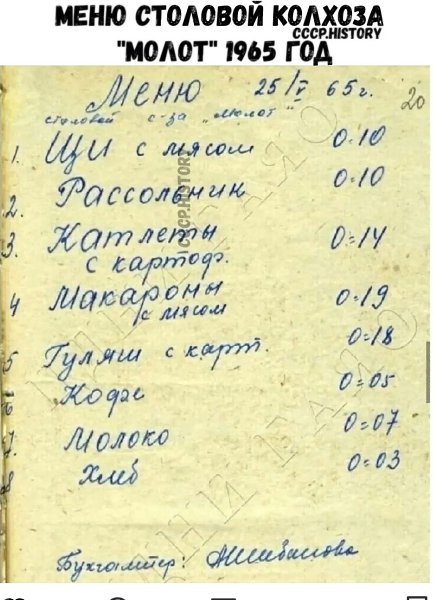 МЕНЮ СТОЛОВОЙ КОЛХОЗА
CCCP.HISTORY
"МОЛОТ" 1965 ГОД
Меню 25/V 65 г. 20
столовой с-за „Молот"
1. Щи с мясом 0=10
2. Рассольник 0=10
3. Катлеты 0=14
с картоф.
4 Макароны 0=19
с мясом
5 Гуляш с карт. 0=18
6 Кофе 0=05
7. Молоко 0=07
8 Хлеб 0=03
CCCP.HISTORY
Бухгалтер: